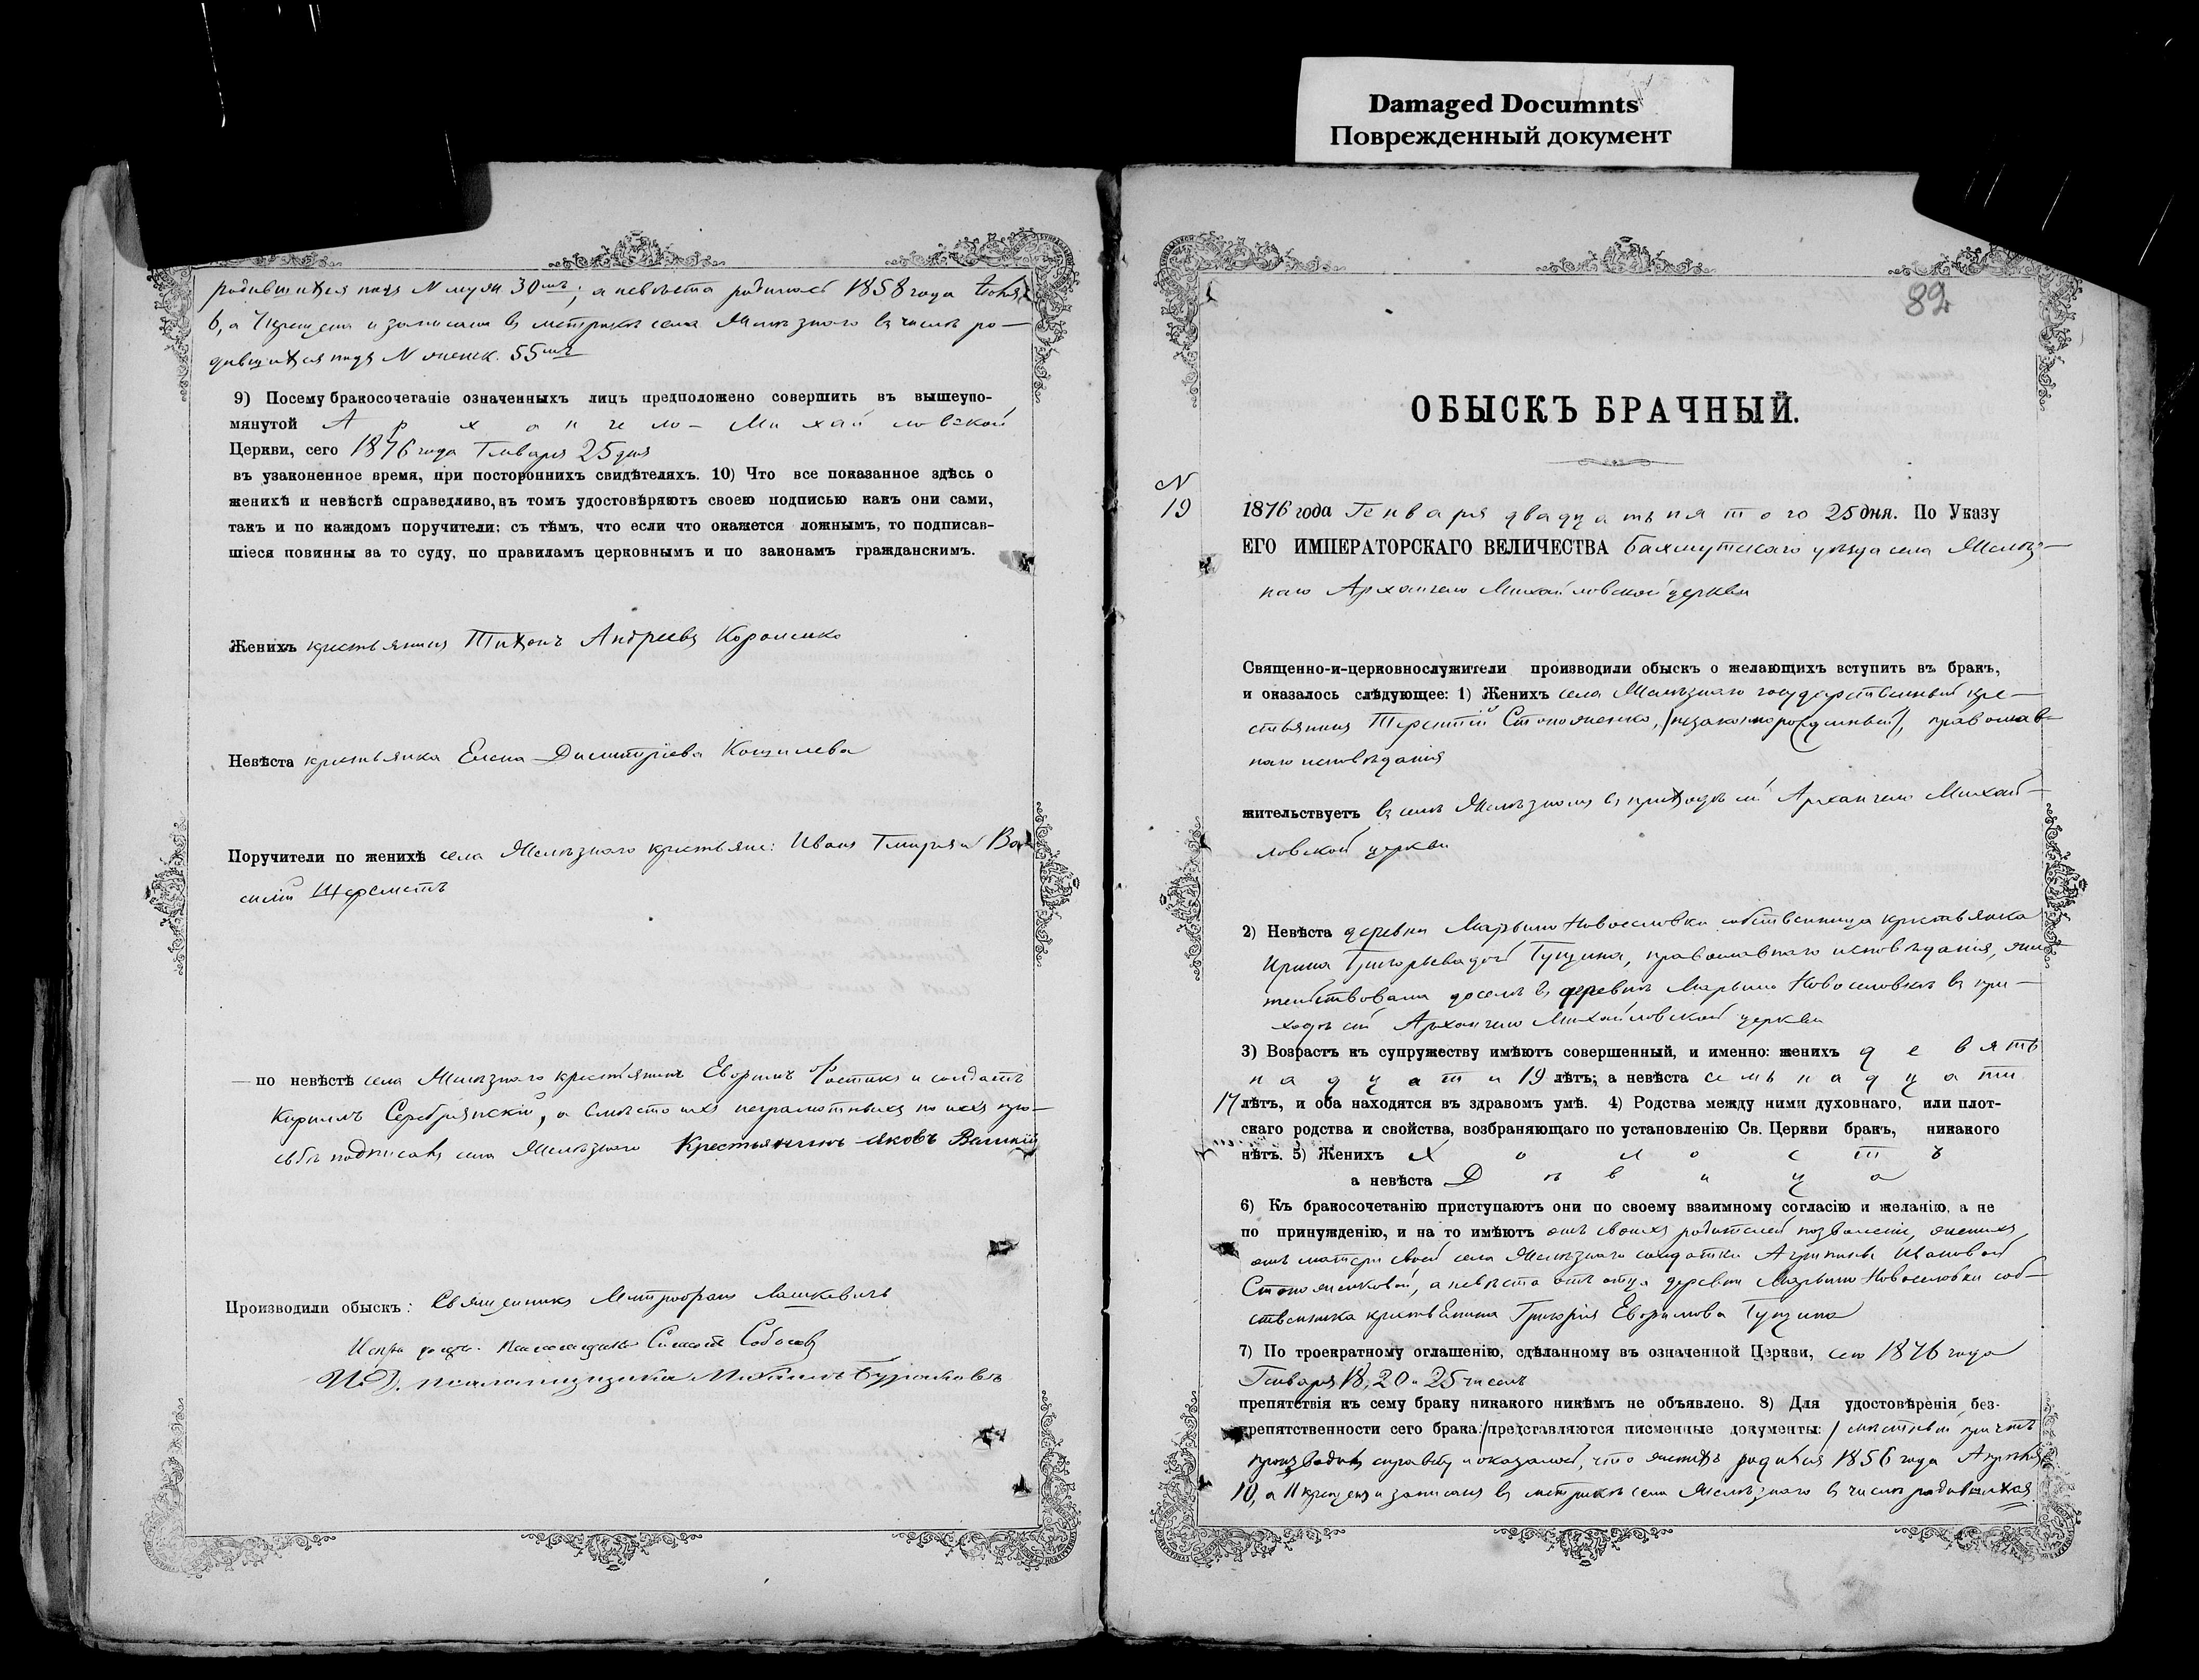 Damaged Documnts
Поврежденный документ
родившихся подъ N муж 30мъ; а невѣста родилась 1858 года
6, а 7 крещена и записана въ метрикѣ села Желѣзнаго въ числѣ ро-
дившихся подъ N женск. 55мъ
9) Посему бракосочетаніе означенныхъ лицъ предположено совершить въ вышеупо-
мянутой Архангело-Михайловской
Церкви, сего 1876 года Генваря 25 дня
въ узаконенное время, при постороннихъ свидѣтеляхъ. 10) Что все показанное здѣсь о
женихѣ и невѣстѣ справедливо, въ томъ удостовѣряютъ своею подписью какъ они сами,
такъ и по каждомъ поручители; съ тѣмъ, что если что окажется ложнымъ, то подписав-
шіеся повинны за то суду, по правиламъ церковнымъ и по законамъ гражданскимъ.
Женихъ крестьянинъ Тихонъ Андреевъ
Невѣста крестьянка Елена Димитріева
Поручители по женихѣ села Желѣзнаго крестьяне: Иванъ и Ва
силій Шереметъ
— по невѣстѣ села Желѣзнаго крестьянинъ Ефимъ и солдатъ
Кириллъ Серебрянскій, а вмѣсто ихъ неграмотныхъ по ихъ про-
сьбѣ подписалъ села Желѣзнаго Крестьянинъ Яковъ Великій
Производили обыскъ: Священникъ Митрофанъ Лашкевичъ
псаломщикъ Симеонъ
И.Д. псаломщика
82
ОБЫСКЪ БРАЧНЫЙ.
N
19
1876 года Генваря двадцать пятого 25 дня. По Указу
ЕГО ИМПЕРАТОРСКАГО ВЕЛИЧЕСТВА Бахмутскаго уѣзда села Желѣз-
наго Архангело Михайловской церкви
Священно-и-церковнослужители производили обыскъ о желающихъ вступить въ бракъ,
и оказалось слѣдующее: 1) Женихъ села Желѣзнаго государственный кре-
стьянинъ Терентій Стопоженко, /незаконнорожденный/, православ-
наго исповѣданія
жительствуетъ въ селѣ Желѣзномъ въ приходѣ сей Архангело Михай-
ловской церкви
2) Невѣста деревни Марьино Новоселовки собственница крестьянка
Ирина Григорьева дочь Гупцина, православнаго исповѣданія, жи-
тельствовала доселѣ въ деревнѣ Марьино Новоселовкѣ въ при-
ходѣ сей Архангело Михайловской церкви
3) Возрастъ къ супружеству имѣютъ совершенный, и именно: женихъ девять
надцати 19 лѣтъ; а невѣста семьнадцати
17 лѣтъ, и оба находятся въ здравомъ умѣ. 4) Родства между ними духовнаго, или плот-
скаго родства и свойства, возбраняющаго по установленію Св. Церкви бракъ, никакого
нѣтъ. 5) Женихъ Холостъ
а невѣста Дѣвица
6) Къ бракосочетанію приступаютъ они по своему взаимному согласію и желанію, а не
по принужденію, и на то имѣютъ отъ своихъ родителей позволеніе, женихъ
отъ матери своей села Желѣзнаго солдатки Агрипины Ивановой
Стопоженковой, а невѣста отъ отца деревни Марьино Новоселовки соб-
ственника крестьянина Григорія Ефимова Гупцина
7) По троекратному оглашенію, сдѣланному въ означенной Церкви, сего 1876 года
Генваря 18, 20 и 25 чиселъ
препятствія къ сему браку никакого никѣмъ не объявлено. 8) Для удостовѣренія без-
препятственности сего брака /представляются писменные документы:/ мѣстный причтъ
производилъ справку и оказалось, что женихъ родился 1856 года Апрѣля
10, а 11 крещенъ и записанъ въ метрикѣ села Желѣзнаго въ числѣ родившихся